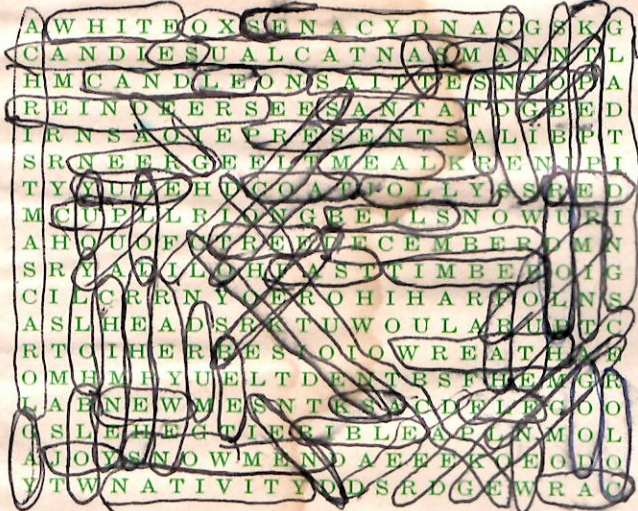 A W H I T E O X S E N A C Y D N A C G S K G
C A N D L E S U A L C A T N A S M A N N T L
H M C A N D L E O N S A I T T E S N I O P A
R E I N D E E R S E E S A N T A T D G B E D
I R N S A O I E P R E S E N T S A L Y B P T
S R N E E R G E E L T M E A L K R E N I P I
T Y Y U L E H D C O A T F O L L Y S S R E D
M C U P L L R I O N G B E L L S N O W U R I
A H O U O F C T R E E D E C E M B E R D M N
S R Y A D I L O H F A S T T I M B E R O I G
C I L C R R N Y O E R O H I H A R P O L N S
A S L H E A D S R K T U W O U L A R U P T C
R T O I H E R R E S I O I O W R E A T H A E
O M H M H Y U E L T D E N T B S F H E M G R
L A B N E W M E S N T K S A C D E L E G O O
G S L T H E G T I E R I B L E A P L N M O L
A J O Y S N O W M E N D A E E E K O E O D O
Y T W N A T I V I T Y D D S R D G E W R A C